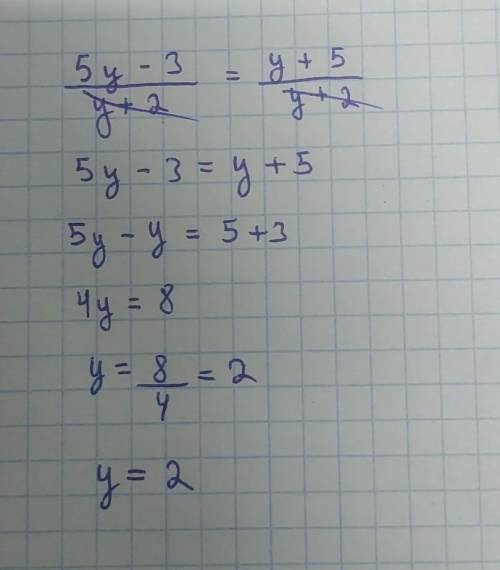 5y - 3 / y + 2 = y + 5 / y + 2
5y - 3 = y + 5
5y - y = 5 + 3
4y = 8
y = 8 / 4 = 2
y = 2